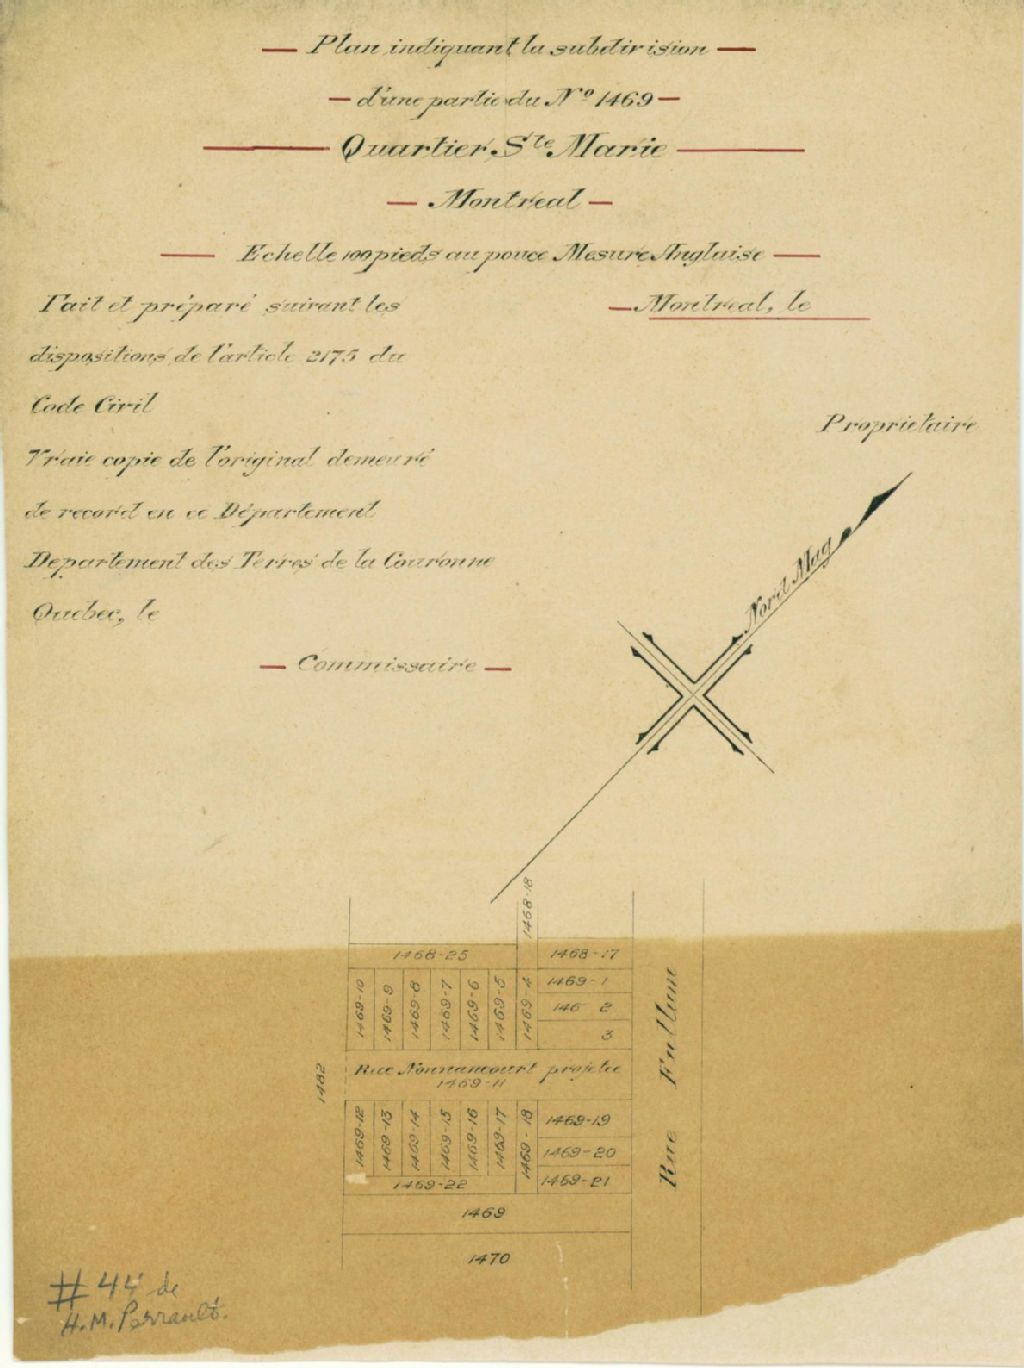 Plan indiquant la subdivision
d'une partie du Nº 1469
Quartier Ste Marie
Montreal
Echelle 100 pieds au pouce Mesure Anglaise
Fait et préparé suivant les
dispositions de l'article 2175 du
Code Civil
Montreal, le
Proprietaire
Vraie copie de l'original demeuré
de record en ce Département
Departement des Terres de la Couronne
Quebec, le
Commissaire
Nord Mag
1468-18
1468-25
1468-17
1469-10
1469-9
1469-8
1469-7
1469-6
1469-5
1469-4
1469-1
146 2
3
Rue Fullum
1482
Rue Nonnancourt projetée
1469-11
1469-12
1469-13
1469-14
1469-15
1469-16
1469-17
1469-18
1469-19
1469-20
1469-21
1469-22
1469
1470
# 44 de
H. M. Perrault.